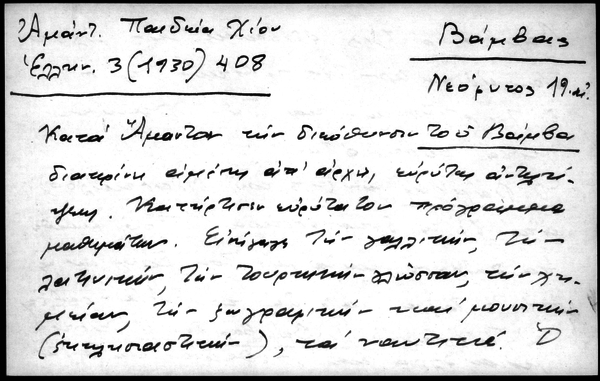 Ἀμάντ. Παιδεία Χίου
Ἑλλην. 3 (1930) 408
Βάμβας
Νεόφυτος 19. αἰ.
Κατά Ἄμαντον τήν διεύθυνσιν τοῦ Βάμβα
διακρίνει ἀπ' ἀρχῆς, εὐρύτης ἀντιλή-
ψεως. Κατήρτισεν εὐρύτατον πρόγραμμα
μαθημάτων. Εἰσήγαγε τήν γαλλικήν, τήν
λατινικήν, τήν τουρκικήν γλῶσσαν, τήν χη-
μείαν, τήν ζωγραφικήν καί μουσικήν
(ἐκκλησιαστικήν), τά ναυτικά.